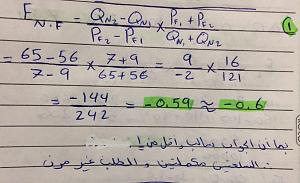 ①
E N.F = (QN2 - QN1) / (PF2 - PF1) × (PF1 + PF2) / (QN1 + QN2)
= (65 - 56) / (7 - 9) × (7 + 9) / (65 + 56) = 9 / -2 × 16 / 121
= -144 / 242 = -0.59 ≈ -0.6
بما أن الجواب سالب وأقل من 1
∴ السلعتين مكملتين والطلب غير مرن